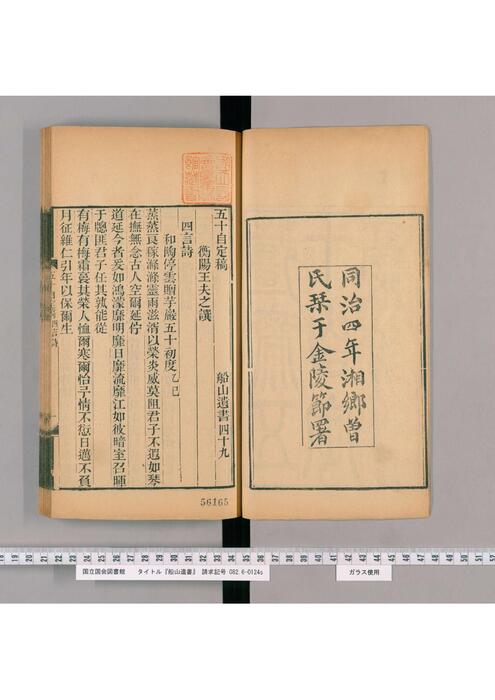 同治四年湘鄉曾
民栞于金陵節署
五十自定稿
船山遺書四十九
衡陽王夫之譔
四言詩
和陶停雲贈芋巖五十初度
乙巳
蒸蒸良稼滌滌靈雨滋湑以榮炎威莫阻君子不遐如琴
在撫無念古人空爾延佇
道延今者爰如鴻蒙靡明靡日靡流靡江如彼暗室召暉
于牕匪君子任其孰能從
有梅有梅霜裛其榮人恤爾寒爾怡予情不愆日邁不負
月征維仁引年以保爾生
56165
国立国会図書館 タイトル『船山遺書』 請求記号 082.6-0124s
ガラス使用